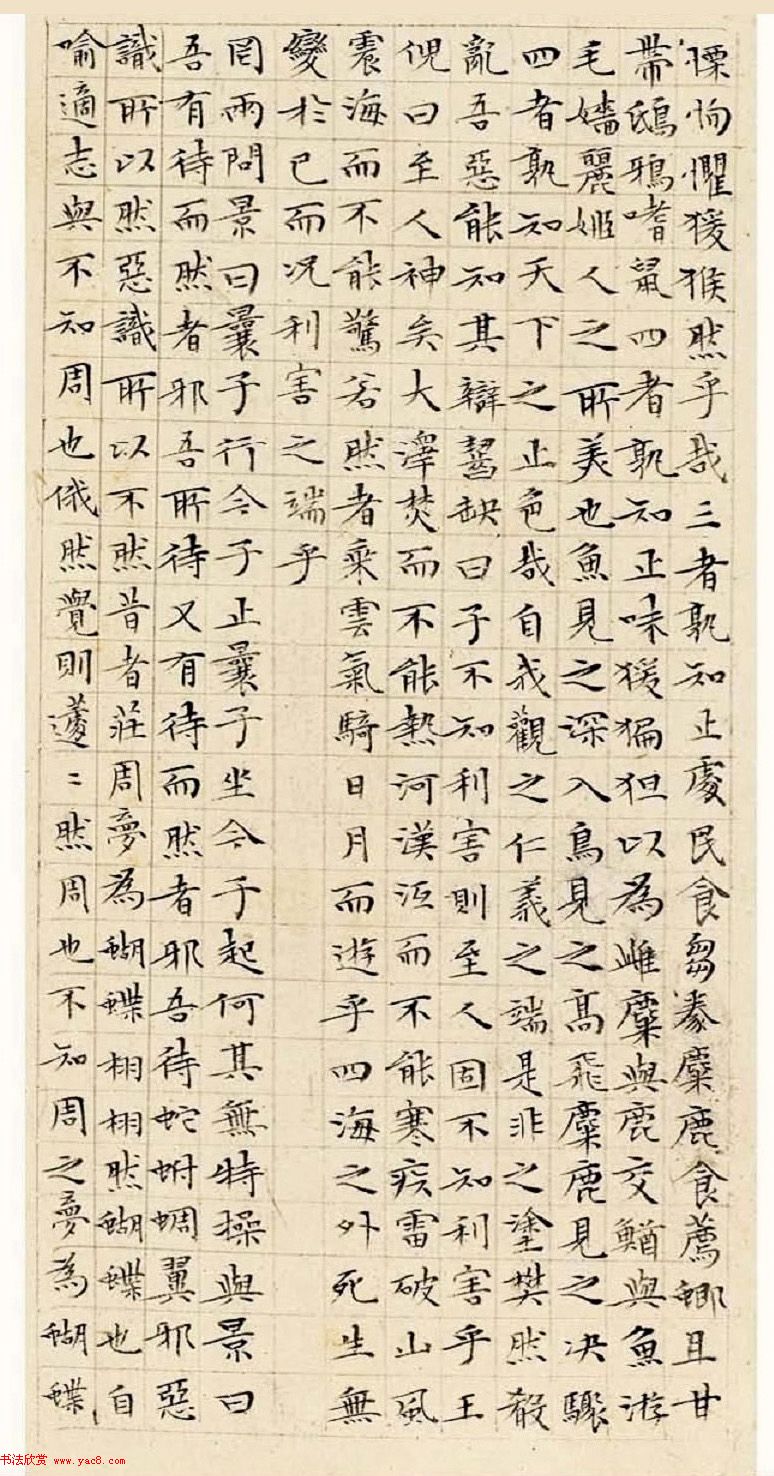 慄恂懼猨猴然乎哉三者孰知正處民食芻豢麋鹿食薦蝍且甘
帶鴟鴉嗜鼠四者孰知正味猨猵狙以為雌麋與鹿交鰌與魚游
毛嬙麗姬人之所美也魚見之深入鳥見之高飛麋鹿見之决驟
四者孰知天下之正色哉自我觀之仁義之端是非之塗樊然殽
亂吾惡能知其辯齧缺曰子不知利害則至人固不知利害乎王
倪曰至人神矣大澤焚而不能熱河漢沍而不能寒疾雷破山風
震海而不能驚若然者乘雲氣騎日月而遊乎四海之外死生無
變於己而况利害之端乎
罔兩問景曰曩子行今子止曩子坐今子起何其無特操與景曰
吾有待而然者邪吾所待又有待而然者邪吾待蛇蚹蜩翼邪惡
識所以然惡識所以不然昔者莊周夢為蝴蝶栩栩然蝴蝶也自
喻適志與不知周也俄然覺則蘧〻然周也不知周之夢為蝴蝶
书法欣赏 www.yac8.com